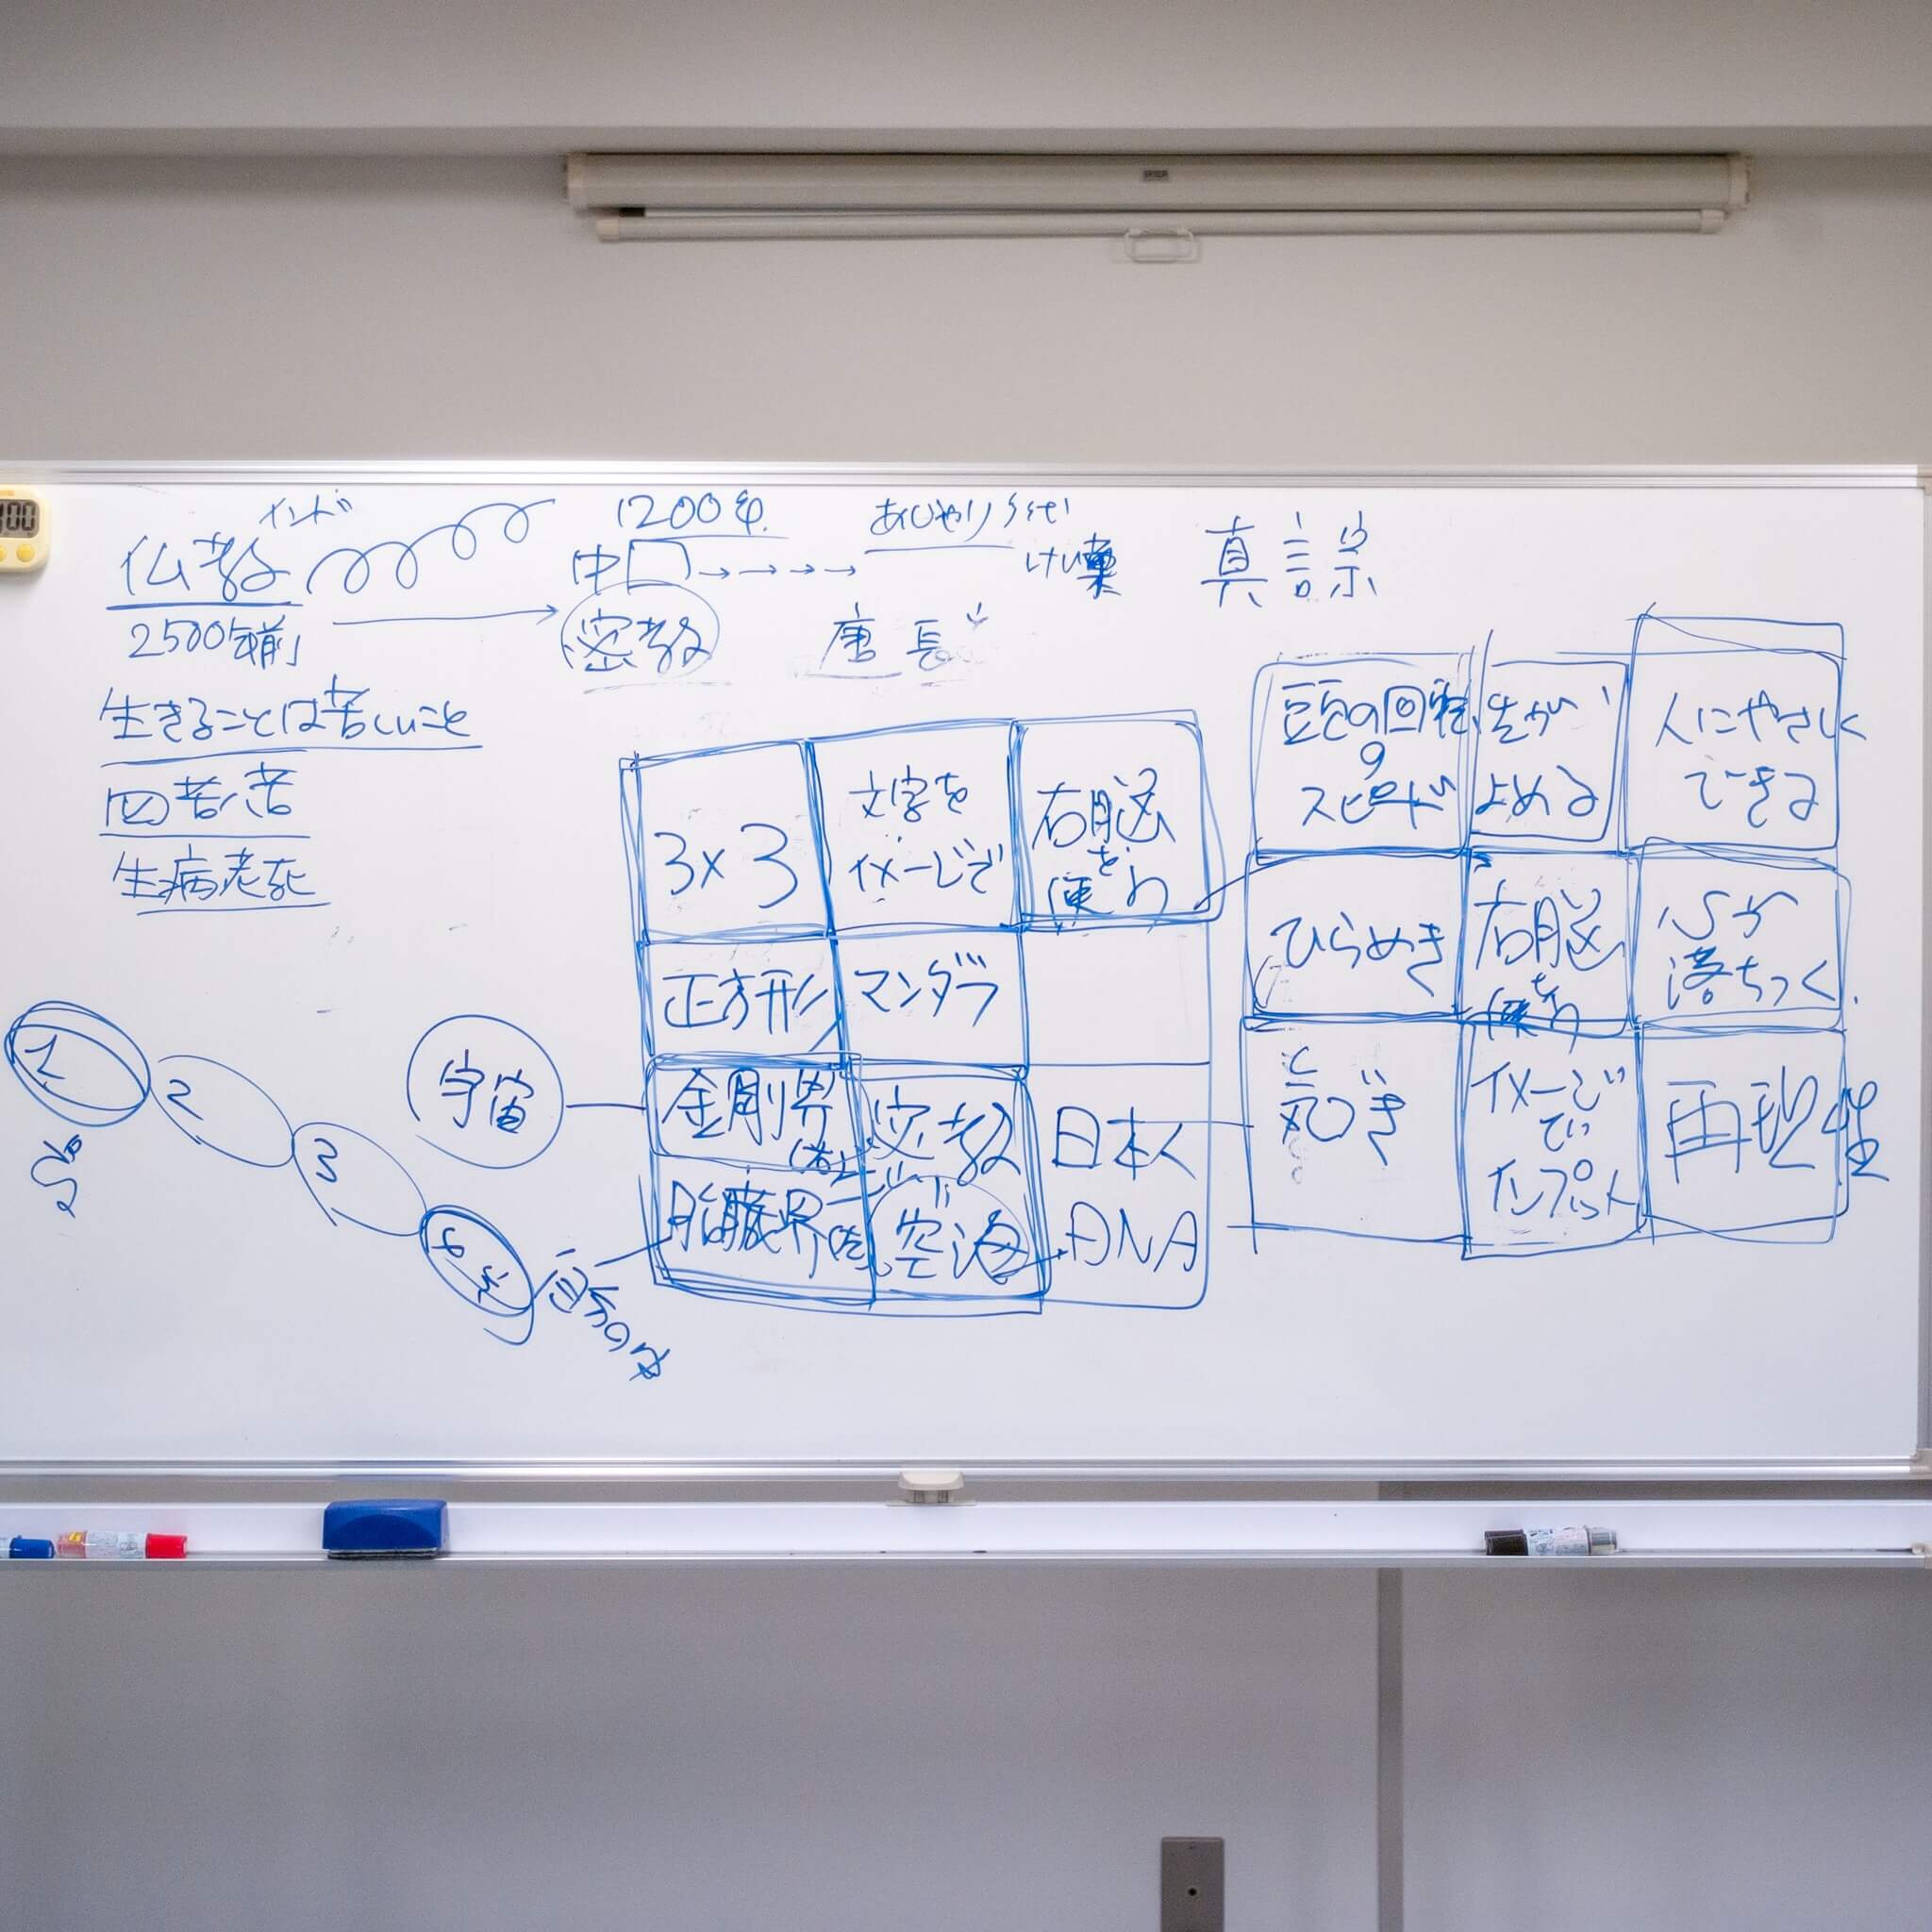 インド
仏教
2500年前
1200年
中国→→→→
密教
あじゃり
けい
唐 長
真言宗
生きることは苦しいこと
四苦
生病老死
3×3
文字を
イメージで
右脳
を
使う
正方形
マンダラ
金剛界
密教
日本人
胎蔵界
空海
DNA
宇宙
1
2
3
頭の回転
の
スピード
先が
よめる
人にやさしく
できる
ひらめき
右脳
を
使う
心が
落ちつく
気づき
イメージ
で
インプット
再現性